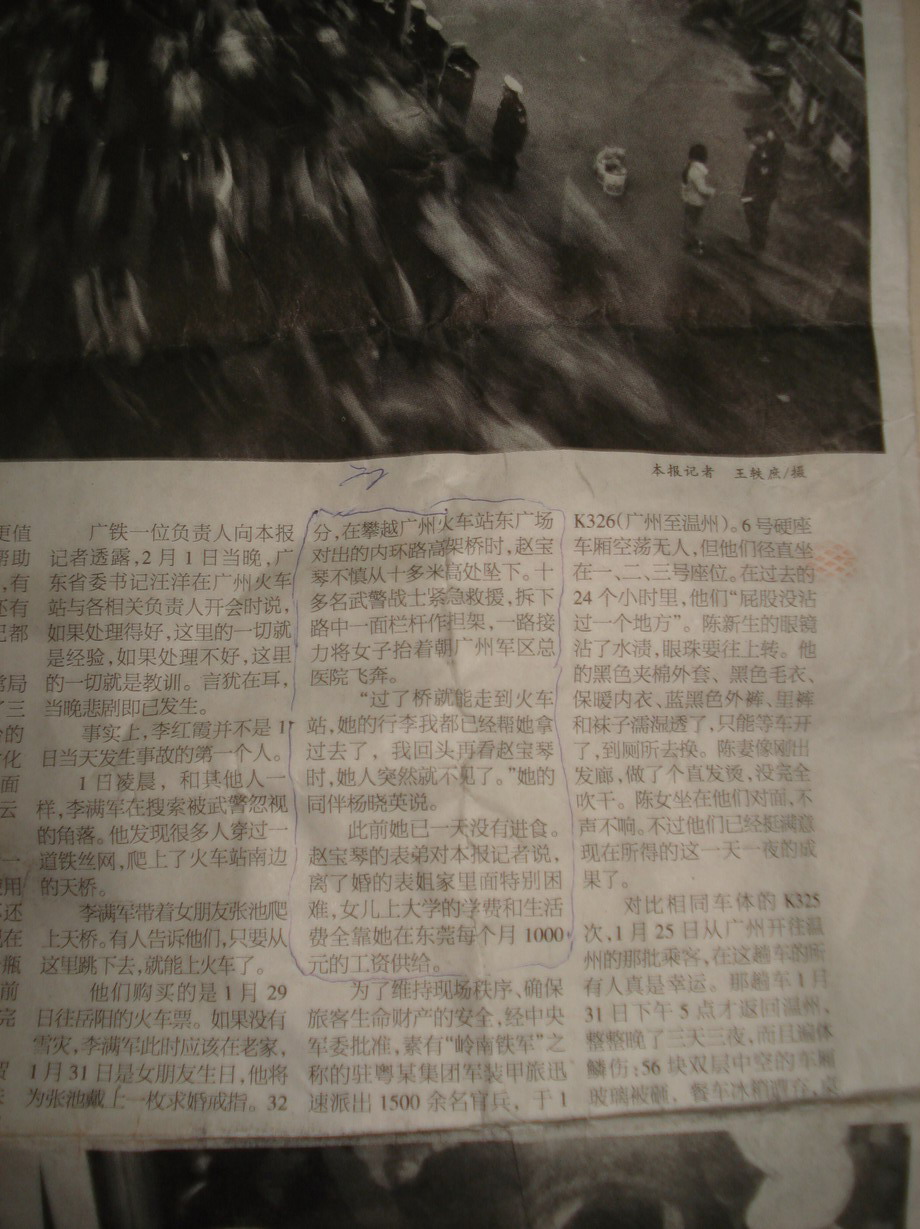 本报记者 王轶庶/摄
更值
帮助
,有
还有
己都
常局
了三
分的
文化
面
云
一
使用
还
现在
瓶
前
完
广铁一位负责人向本报
记者透露,2月1日当晚,广
东省委书记汪洋在广州火车
站与各相关负责人开会时说,
如果处理得好,这里的一切就
是经验,如果处理不好,这里
的一切就是教训。言犹在耳,
当晚悲剧即已发生。
事实上,李红霞并不是1
日当天发生事故的第一个人。
1日凌晨,和其他人一
样,李满军在搜索被武警忽视
的角落。他发现很多人穿过一
道铁丝网,爬上了火车站南边
的天桥。
李满军带着女朋友张池爬
上天桥。有人告诉他们,只要从
这里跳下去,就能上火车了。
他们购买的是1月29
日往岳阳的火车票。如果没有
雪灾,李满军此时应该在老家,
1月31日是女朋友生日,他将
为张池戴上一枚求婚戒指。32
分,在攀越广州火车站东广场
对出的内环路高架桥时,赵宝
琴不慎从十多米高处坠下。十
多名武警战士紧急救援,拆下
路中一面栏杆作担架,一路接
力将女子抬着朝广州军区总
医院飞奔。
“过了桥就能走到火车
站,她的行李我都已经帮她拿
过去了,我回头再看赵宝琴
时,她人突然就不见了。”她的
同伴杨晓英说。
此前她已一天没有进食。
赵宝琴的表弟对本报记者说,
离了婚的表姐家里面特别困
难,女儿上大学的学费和生活
费全靠她在东莞每个月1000
元的工资供给。
为了维持现场秩序、确保
旅客生命财产的安全,经中央
军委批准,素有“岭南铁军”之
称的驻粤某集团军装甲旅迅
速派出1500余名官兵,于1
K326(广州至温州)。6号硬座
车厢空荡无人,但他们径直坐
在一、二、三号座位。在过去的
24个小时里,他们“屁股没沾
过一个地方”。陈新生的眼镜
沾了水渍,眼珠要往上转。他
的黑色夹棉外套、黑色毛衣、
保暖内衣、蓝黑色外裤、里裤
和袜子濡湿透了,只能等车开
了,到厕所去换。陈妻像刚出
发廊,做了个直发烫,没完全
吹干。陈女坐在他们对面,不
声不响。不过他们已经挺满意
现在所得的这一天一夜的成
果了。
对比相同车体的K325
次,1月25日从广州开往温
州的那批乘客,在这趟车的所
有人真是幸运。那趟车1月
31日下午5点才返回温州,
整整晚了三天三夜,而且遍体
鳞伤:56块双层中空的车厢
玻璃被砸,餐车冰箱遭弃,桌